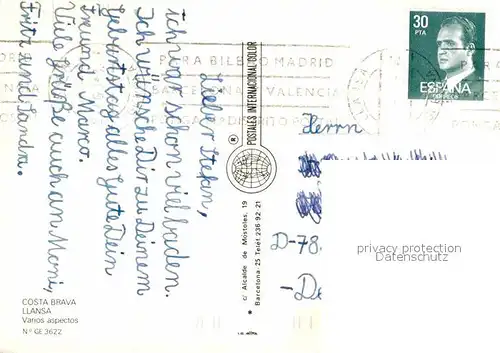 Lieber Stefan,
ich war schon viel baden.
Ich wünsche Dir zu Deinem
Geburtstag alles Gute Dein
Freund Marco.
Viele Grüße auch an Moni,
Fritz und Sandra.
COSTA BRAVA
LLANSA
Varios aspectos
N.º GE 3622
POSTALES INTERNACIONAL COLOR
®
c/ Alcalde de Móstoles, 19
Barcelona-25 Telef. 236 92 21
PARA BILBAO MADRID
BARCELONA VALENCIA
PONGA DISTRITO POSTAL
30
PTA
ESPAÑA
Herrn
D-78.
-De
privacy protection
Datenschutz